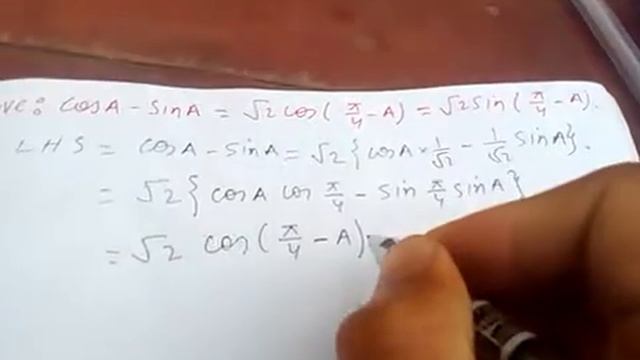 ove: cosA - sinA = √2 cos(π/4 - A) = √2 sin(π/4 - A).
LHS = cosA - sinA = √2 {cosA × 1/√2 - 1/√2 sinA}.
= √2 {cosA cos π/4 - sin π/4 sinA}
= √2 cos(π/4 - A)